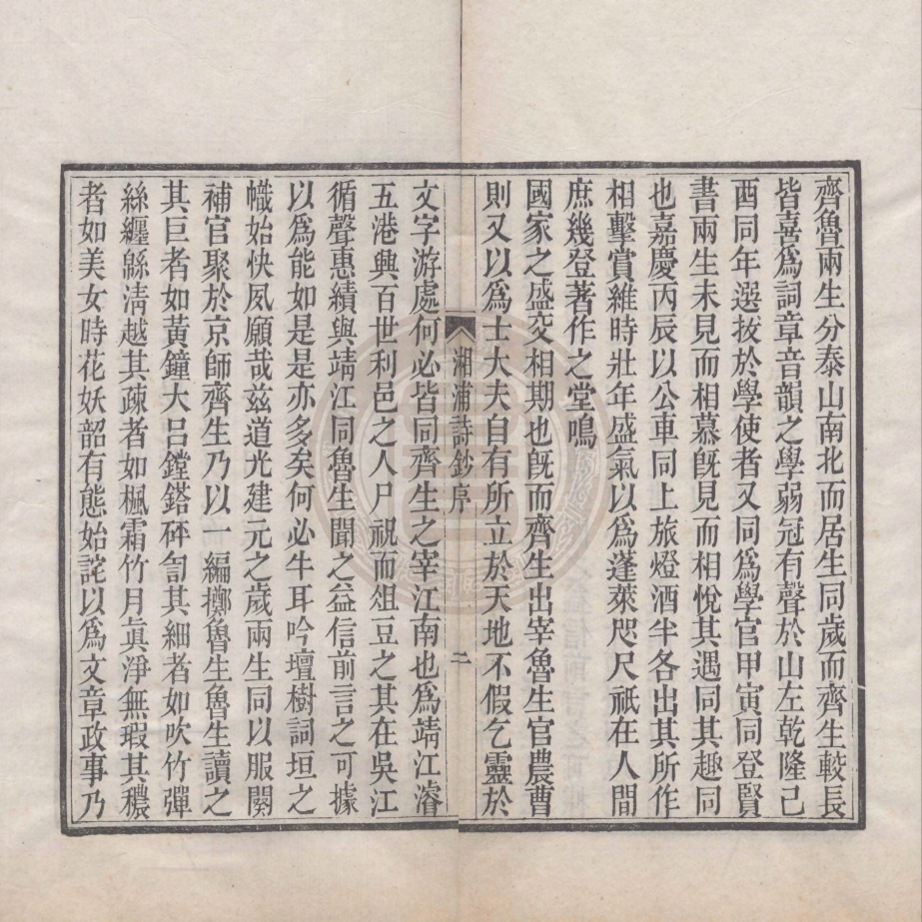 齊魯兩生分泰山南北而居生同歲而齊生較長
皆喜爲詞章音韻之學弱冠有聲於山左乾隆己
酉同年選拔於學使者又同爲學官甲寅同登賢
書兩生未見而相慕旣見而相悅其遇同其趣同
也嘉慶丙辰以公車同上旅燈酒半各出其所作
相擊賞維時壯年盛氣以爲蓬萊咫尺祇在人間
庶幾登著作之堂鳴
國家之盛交相期也旣而齊生出宰魯生官農曹
則又以爲士大夫自有所立於天地不假乞靈於
湘浦詩鈔序 二
文字游處何必皆同齊生之宰江南也爲靖江濬
五港興百世利邑之人尸祝而俎豆之其在吳江
循聲惠績與靖江同魯生聞之益信前言之可據
以爲能如是是亦多矣何必牛耳吟壇樹詞垣之
幟始快夙願哉兹道光建元之歲兩生同以服闋
補官聚於京師齊生乃以一編擲魯生魯生讀之
其巨者如黃鐘大吕鏜鎝砰訇其細者如吹竹彈
絲纏緜淸越其疎者如楓霜竹月眞淨無瑕其穠
者如美女時花妖韶有態始詫以爲文章政事乃